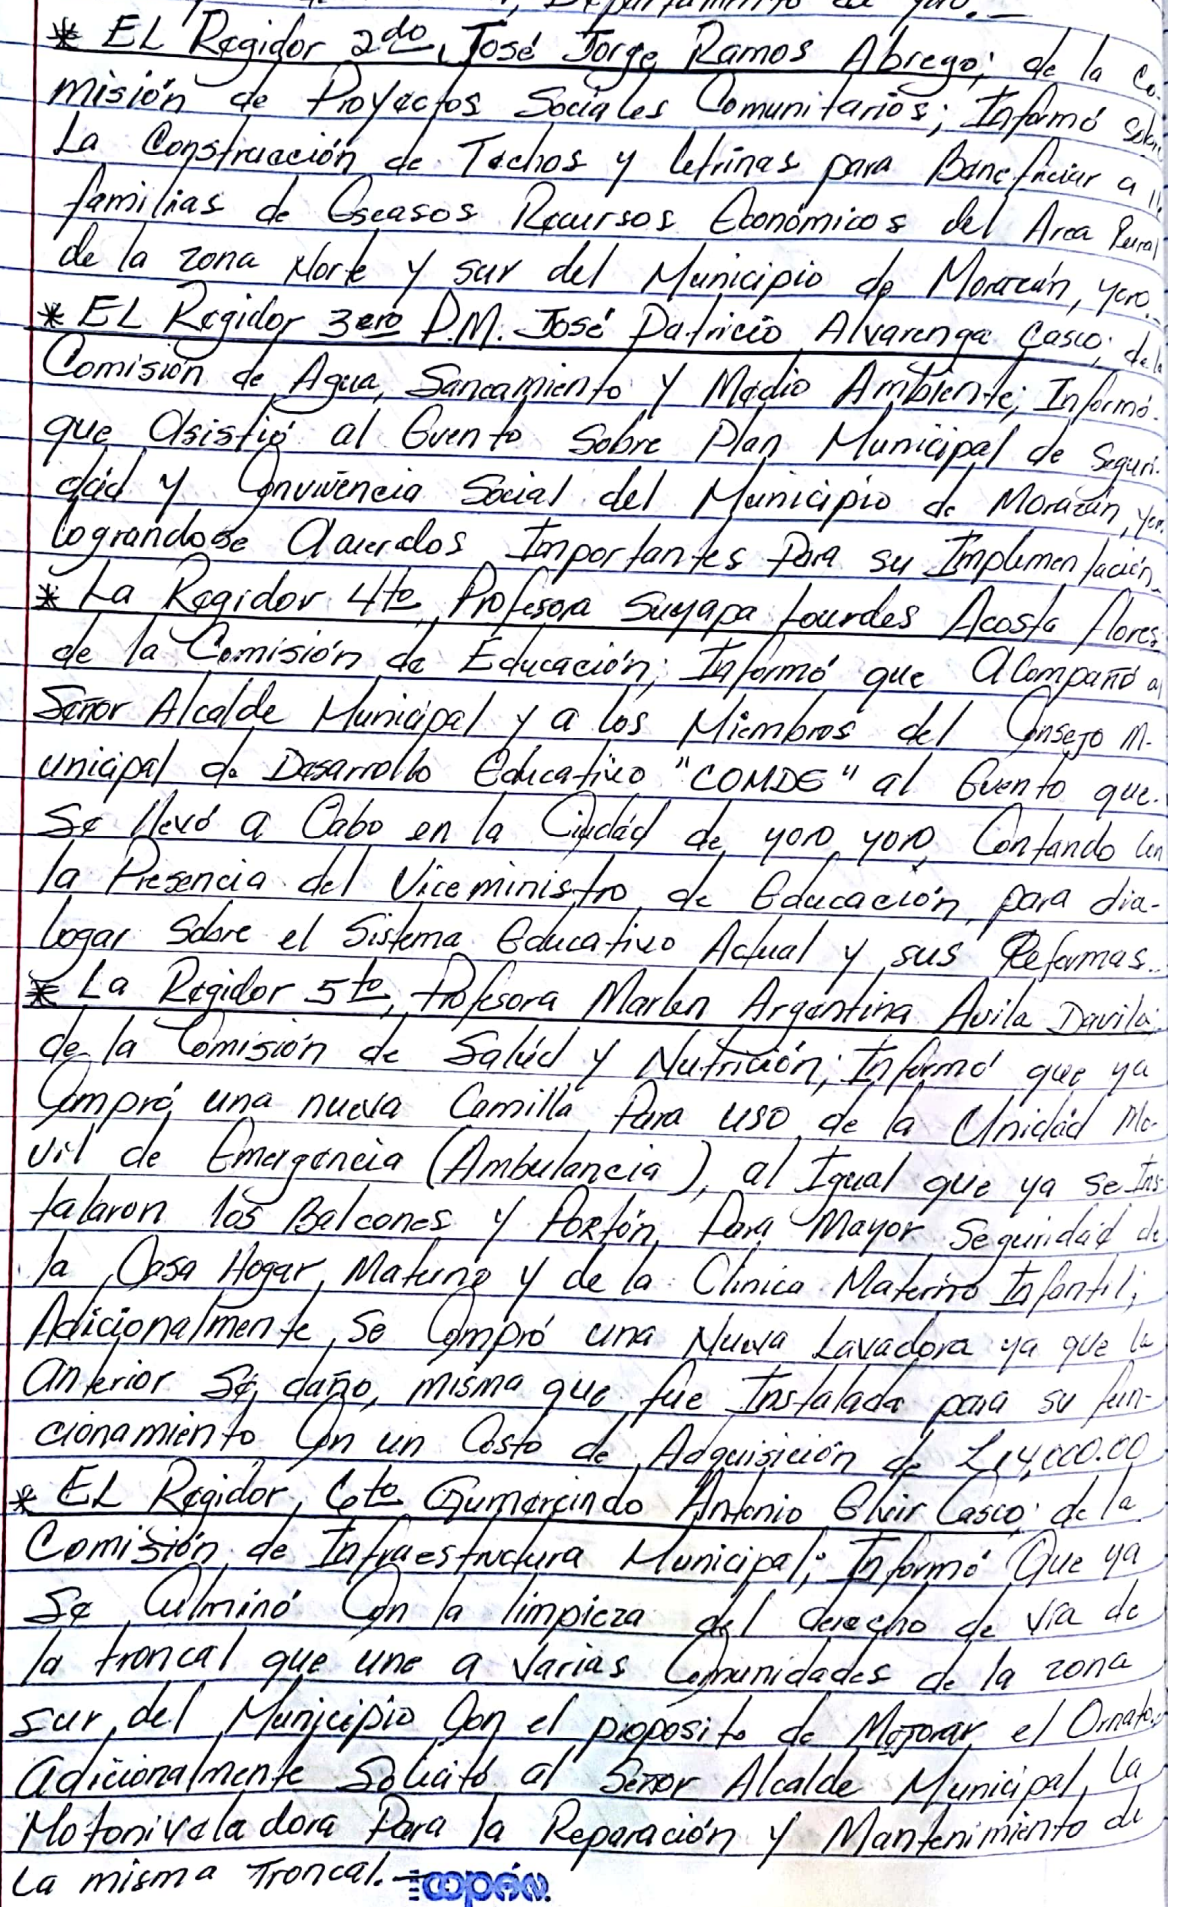 Departamento de Yoro.-
* EL Regidor 2do, José Jorge Ramos Abrego; de la Co-
misión de Proyectos Sociales Comunitarios; Informó sobre
La Construcción de Techos y Letrinas para Beneficiar a
familias de Escasos Recursos Económicos del Area Rural
de la zona Norte y sur del Municipio de Morazán, yoro.-
* EL Regidor 3ero P.M. José Patricio Alvarenga Casco; de la
Comisión de Agua, Saneamiento y Medio Ambiente; Informó
que Asistió al Evento Sobre Plan Municipal de Seguri-
dad y Convivencia Social del Municipio de Morazán, Yoro
lograndose Acuerdos Importantes Para su Implementación.
* La Regidor 4to, Profesora Suyapa Lourdes Acosta flores
de la Comisión de Educación; Informó que Acompañó al
Señor Alcalde Municipal y a los Miembros del Consejo M-
unicipal de Desarrollo Educativo "COMDE" al Evento que
Se llevó a Cabo en la Ciudad de yoro, yoro, Contando Con
la Presencia del Viceministro de Educación, para dia-
logar sobre el Sistema Educativo Actual y sus Reformas..
* La Regidor 5to, Profesora Marlen Argentina Avila Davila;
de la Comisión de Salud y Nutrición; Informó que ya
Compró una nueva Camilla Para uso de la Unidad Mo-
vil de Emergencia (Ambulancia), al Igual que ya se Ins
talaron los Balcones y Portón, Para Mayor Seguridad de
la Casa Hogar Materno y de la Clinica Materno Infantil;
Adicionalmente, Se Compró una Nueva Lavadora ya que la
anterior Se daño, misma que fue Instalada para su fun-
cionamiento Con un Costo de Adquisición de L14,000.00
* EL Regidor, 6to Gumercindo Antonio Elvir Casco; de la
Comisión de Infraestructura Municipal; Informó Que ya
Se Culminó Con la limpieza del derecho de vía de
la troncal que une a varias Comunidades de la zona
sur del Municipio Con el proposito de Mejorar el Ornato.
adicionalmente Solicitó al Señor Alcalde Municipal, La
Motoniveladora Para la Reparación y Mantenimiento de
La misma Troncal.-
copán